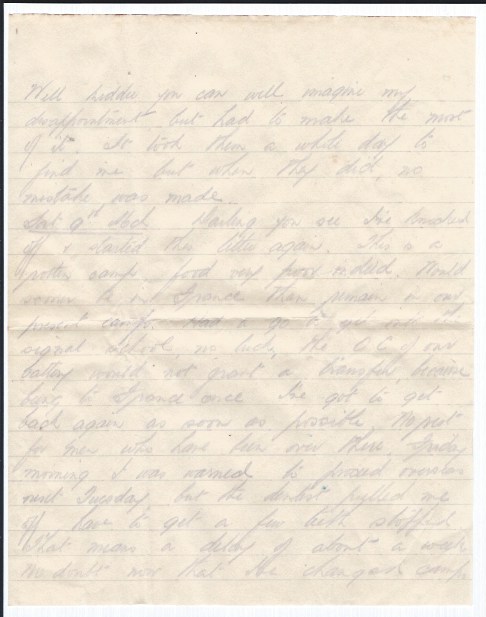 Well kiddie you can well imagine my
disappointment but had to make the most
of it. It took them a while day to
find me but when they did, no
mistake was made.
Sat 9th Mch. Darling you see I've knocked
off & started this letter again. This is a
rotten camp, food very poor indeed. Would
sooner be in France than remain in our
present camp. Had a go to get into the
signal school, no luck, the O.C. of our
battery would not grant a transfer, because
being to France once I've got to get
back again as soon as possible. No rest
for men who have been over there. Friday
morning I was warned to proceed overseas
next Tuesday, but the dentist pulled me
off have to get a few teeth stopped
that means a delay of about a week
No doubt now that I've changed camp